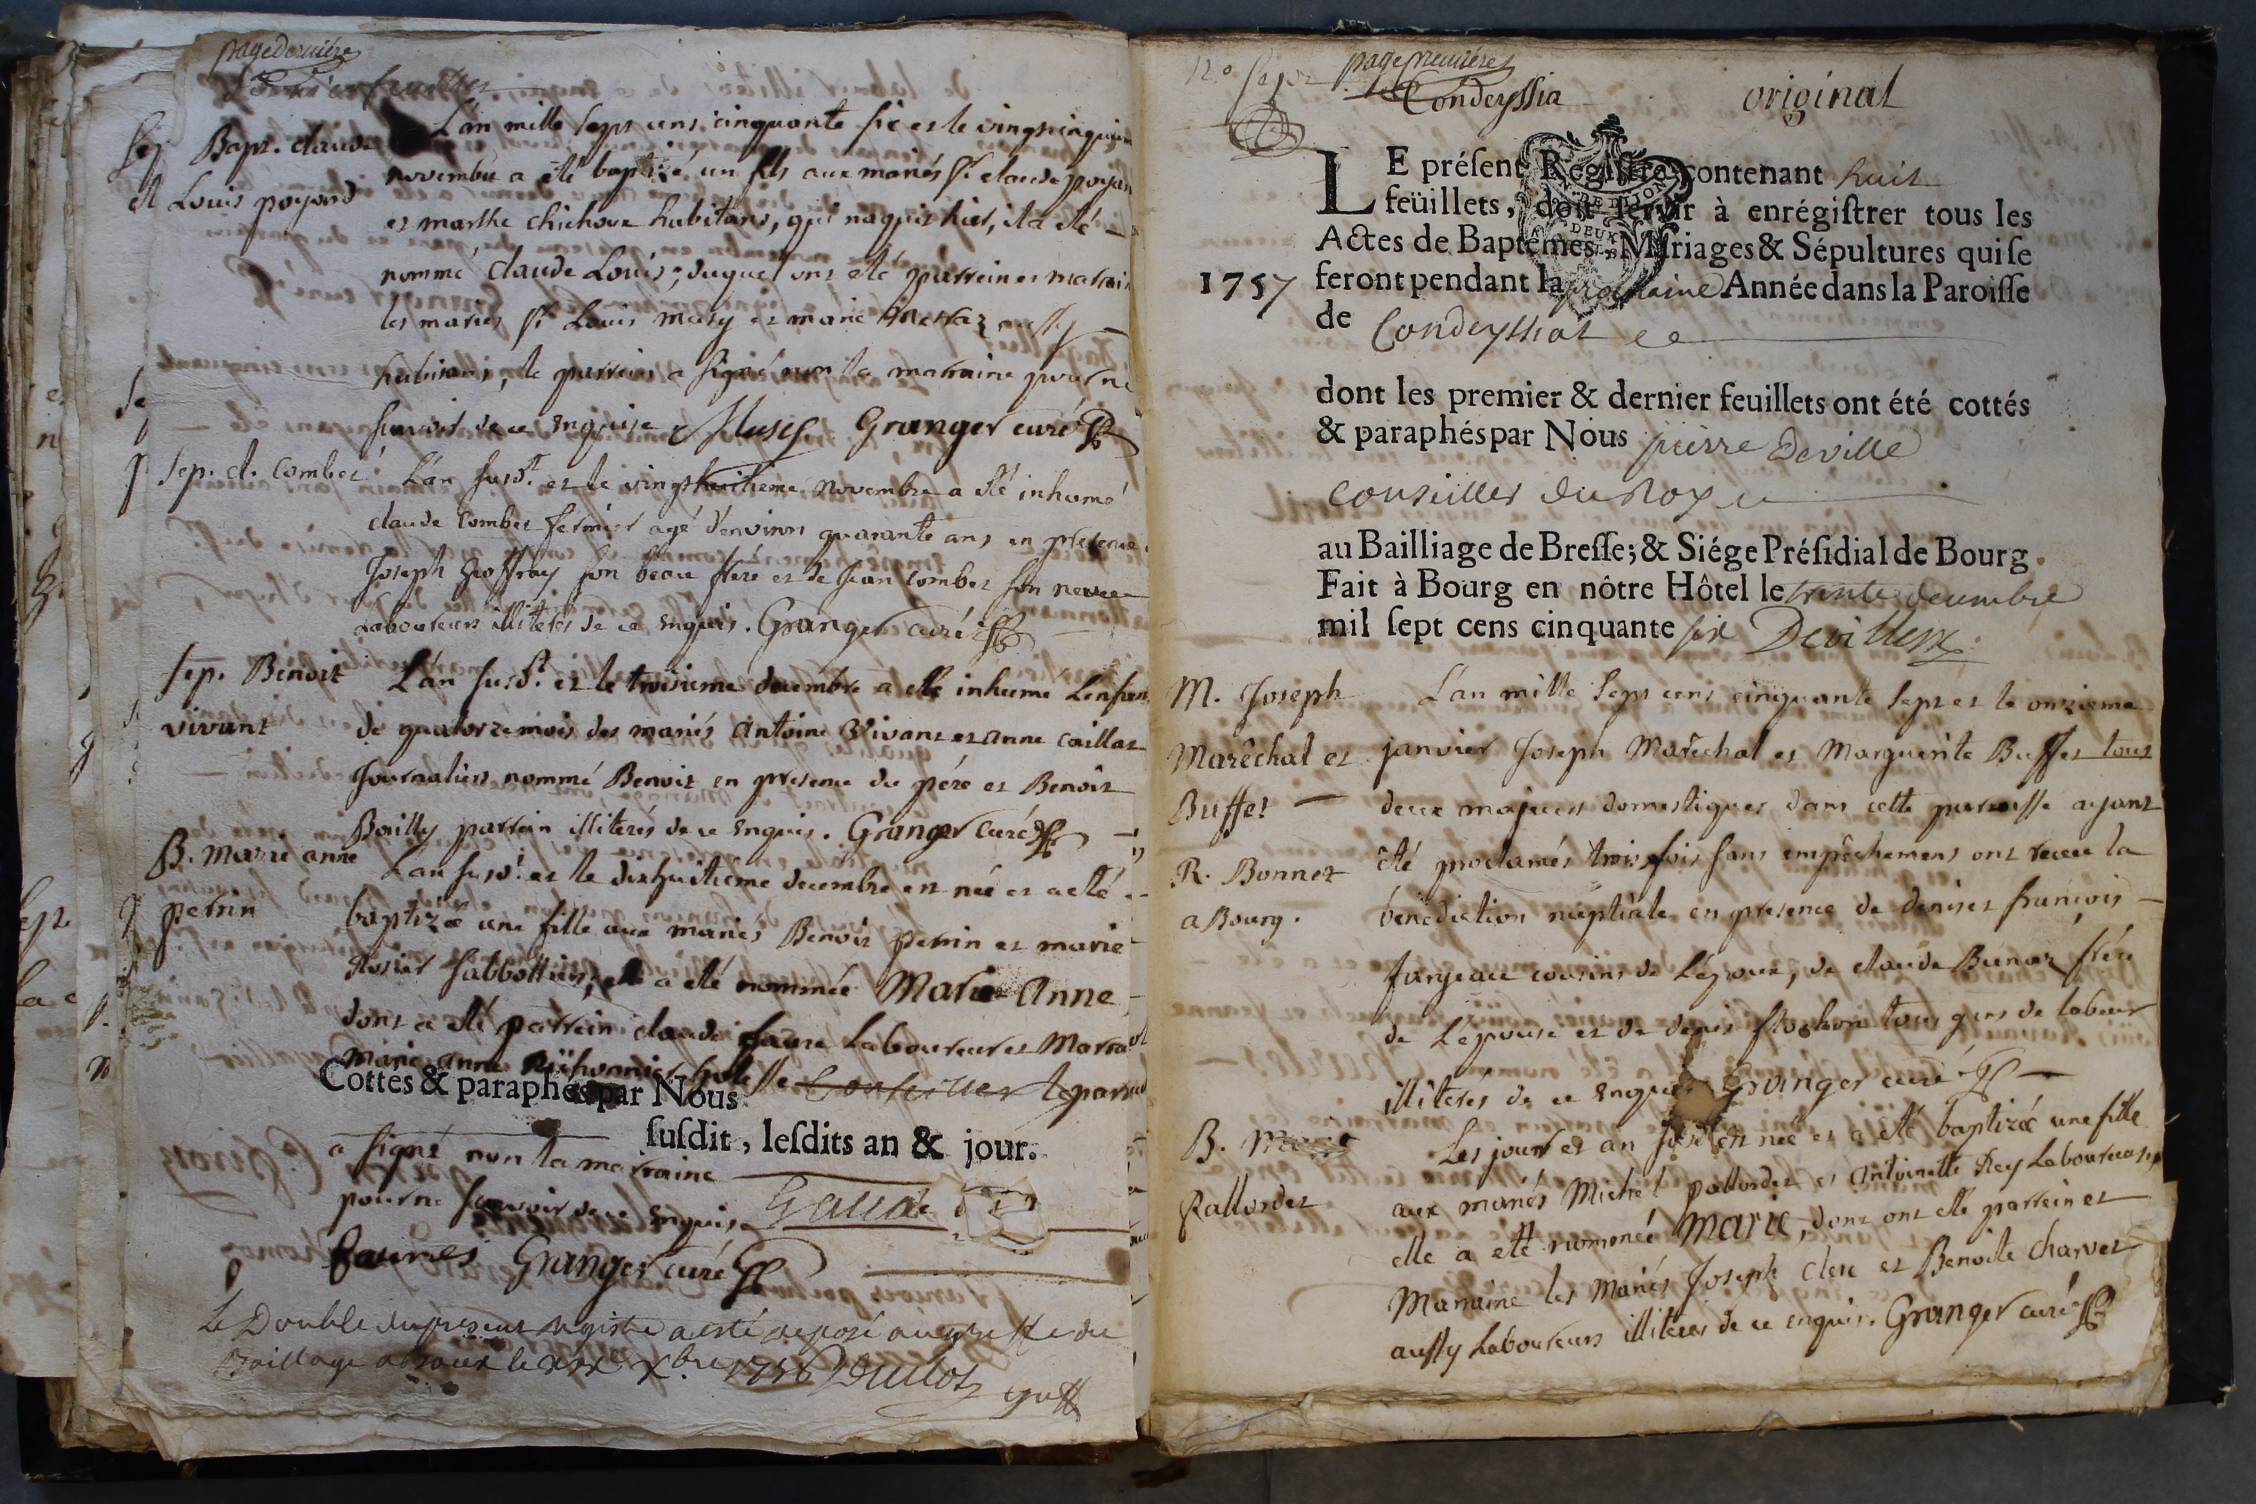 page derniére
Bapt. claude
et Louis poyard
L'an mille sept cens cinquante six et le vingtcinquieme
novembre a été baptizé un fils aux mariés Sr. claude poyard
et marthe habitans, qui naquit hier, il a été
nommé Claude Louis; duquel ont été parrein et marraine
les mariés Sr. Louis et marie aussy
habitans, le parrein a signé non la marraine pour ne
sçavoir de ce enquise Granger curé
sep. cl. Combet
L'an susd.t et le vingthuitieme novembre a été inhumé
claude Combet fermier agé d'environ quarante ans en presence
Joseph Geoffray son beau frere et de Jean Combet son neveu
Laboureurs illiterés de ce enquis. Granger curé
sep. Benoit
vivant
L'an susd.t et le troisieme decembre a été inhumé Lenfant
de quatorze mois des mariés antoine Vivant et anne caillat
Journaliers nommé Benoit en presence du pére et Benoît
Bouilly parrein illiterés de ce enquis. Granger curé
B. marie anne
perrin
L'an susd.t et le dixhuitieme decembre est née et a été
baptizée une fille aux mariés Benoit perrin et marie
Rosier sabbottiers, elle a été nommée Marie Anne
dont a été parrein claude faure Laboureur et Marra
marie anne le parrein
Cottés & paraphés par Nous Conseiller
susdit, lesdits an & jour.
a signé non la marraine
pour ne sçavoir de ce enquise
faures Granger curé
Le Double du present registre a esté deposé au greffe du
Baillage le xbre 1756
page premiére
Condeyssia original
LE présent Registre contenant huit
feüillets, doit servir à enrégistrer tous les
Actes de Baptêmes, Mariages & Sépultures qui se
1757 feront pendant la prochaine Année dans la Paroisse
de Condeyssiat
dont les premier & dernier feuillets ont été cottés
& paraphés par Nous pierre Deville
conseiller du Roy
au Bailliage de Bresse; & Siége Présidial de Bourg.
Fait à Bourg en nôtre Hôtel le trente decembre
mil sept cens cinquante six Deville
M. Joseph
Marêchal et
Buffet
R. Bonnet
a Bourg.
L'an mille sept cens cinquante sept et le onzieme
janvier Joseph Marêchal et Marguerite Buffet tous
deux majeurs domestiques dans cette parroisse ayant
été proclamés trois fois sans empêchemens ont receu la
benediction nuptiale en presence de denis et françois
fargeau cousins de L'époux, de claude frére
de L'épouse et de denis tous gens de labeur
illiterés de ce enquis Granger curé
B. Marie
pallordet
Les jour et an susd. est née et a été baptizée une fille
aux mariés Michel pallordet et antoinette Rey Laboureurs,
elle a été nommée Marie, dont ont été parrein et
Marraine les mariés Joseph clerc et Benoite charvet
aussy Laboureurs illiterés de ce enquis. Granger curé